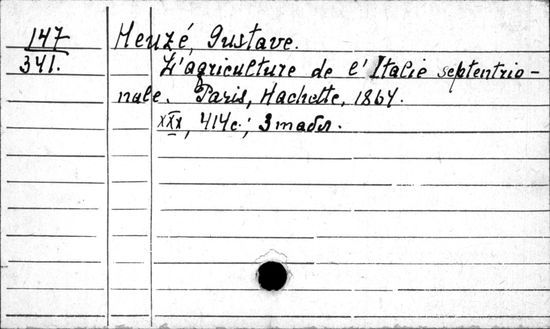 147 Heuzé, Gustave.
341. L'agriculture de l'Italie septentrio-
nale. Paris, Hachette, 1864.
XXX, 414c.; 3